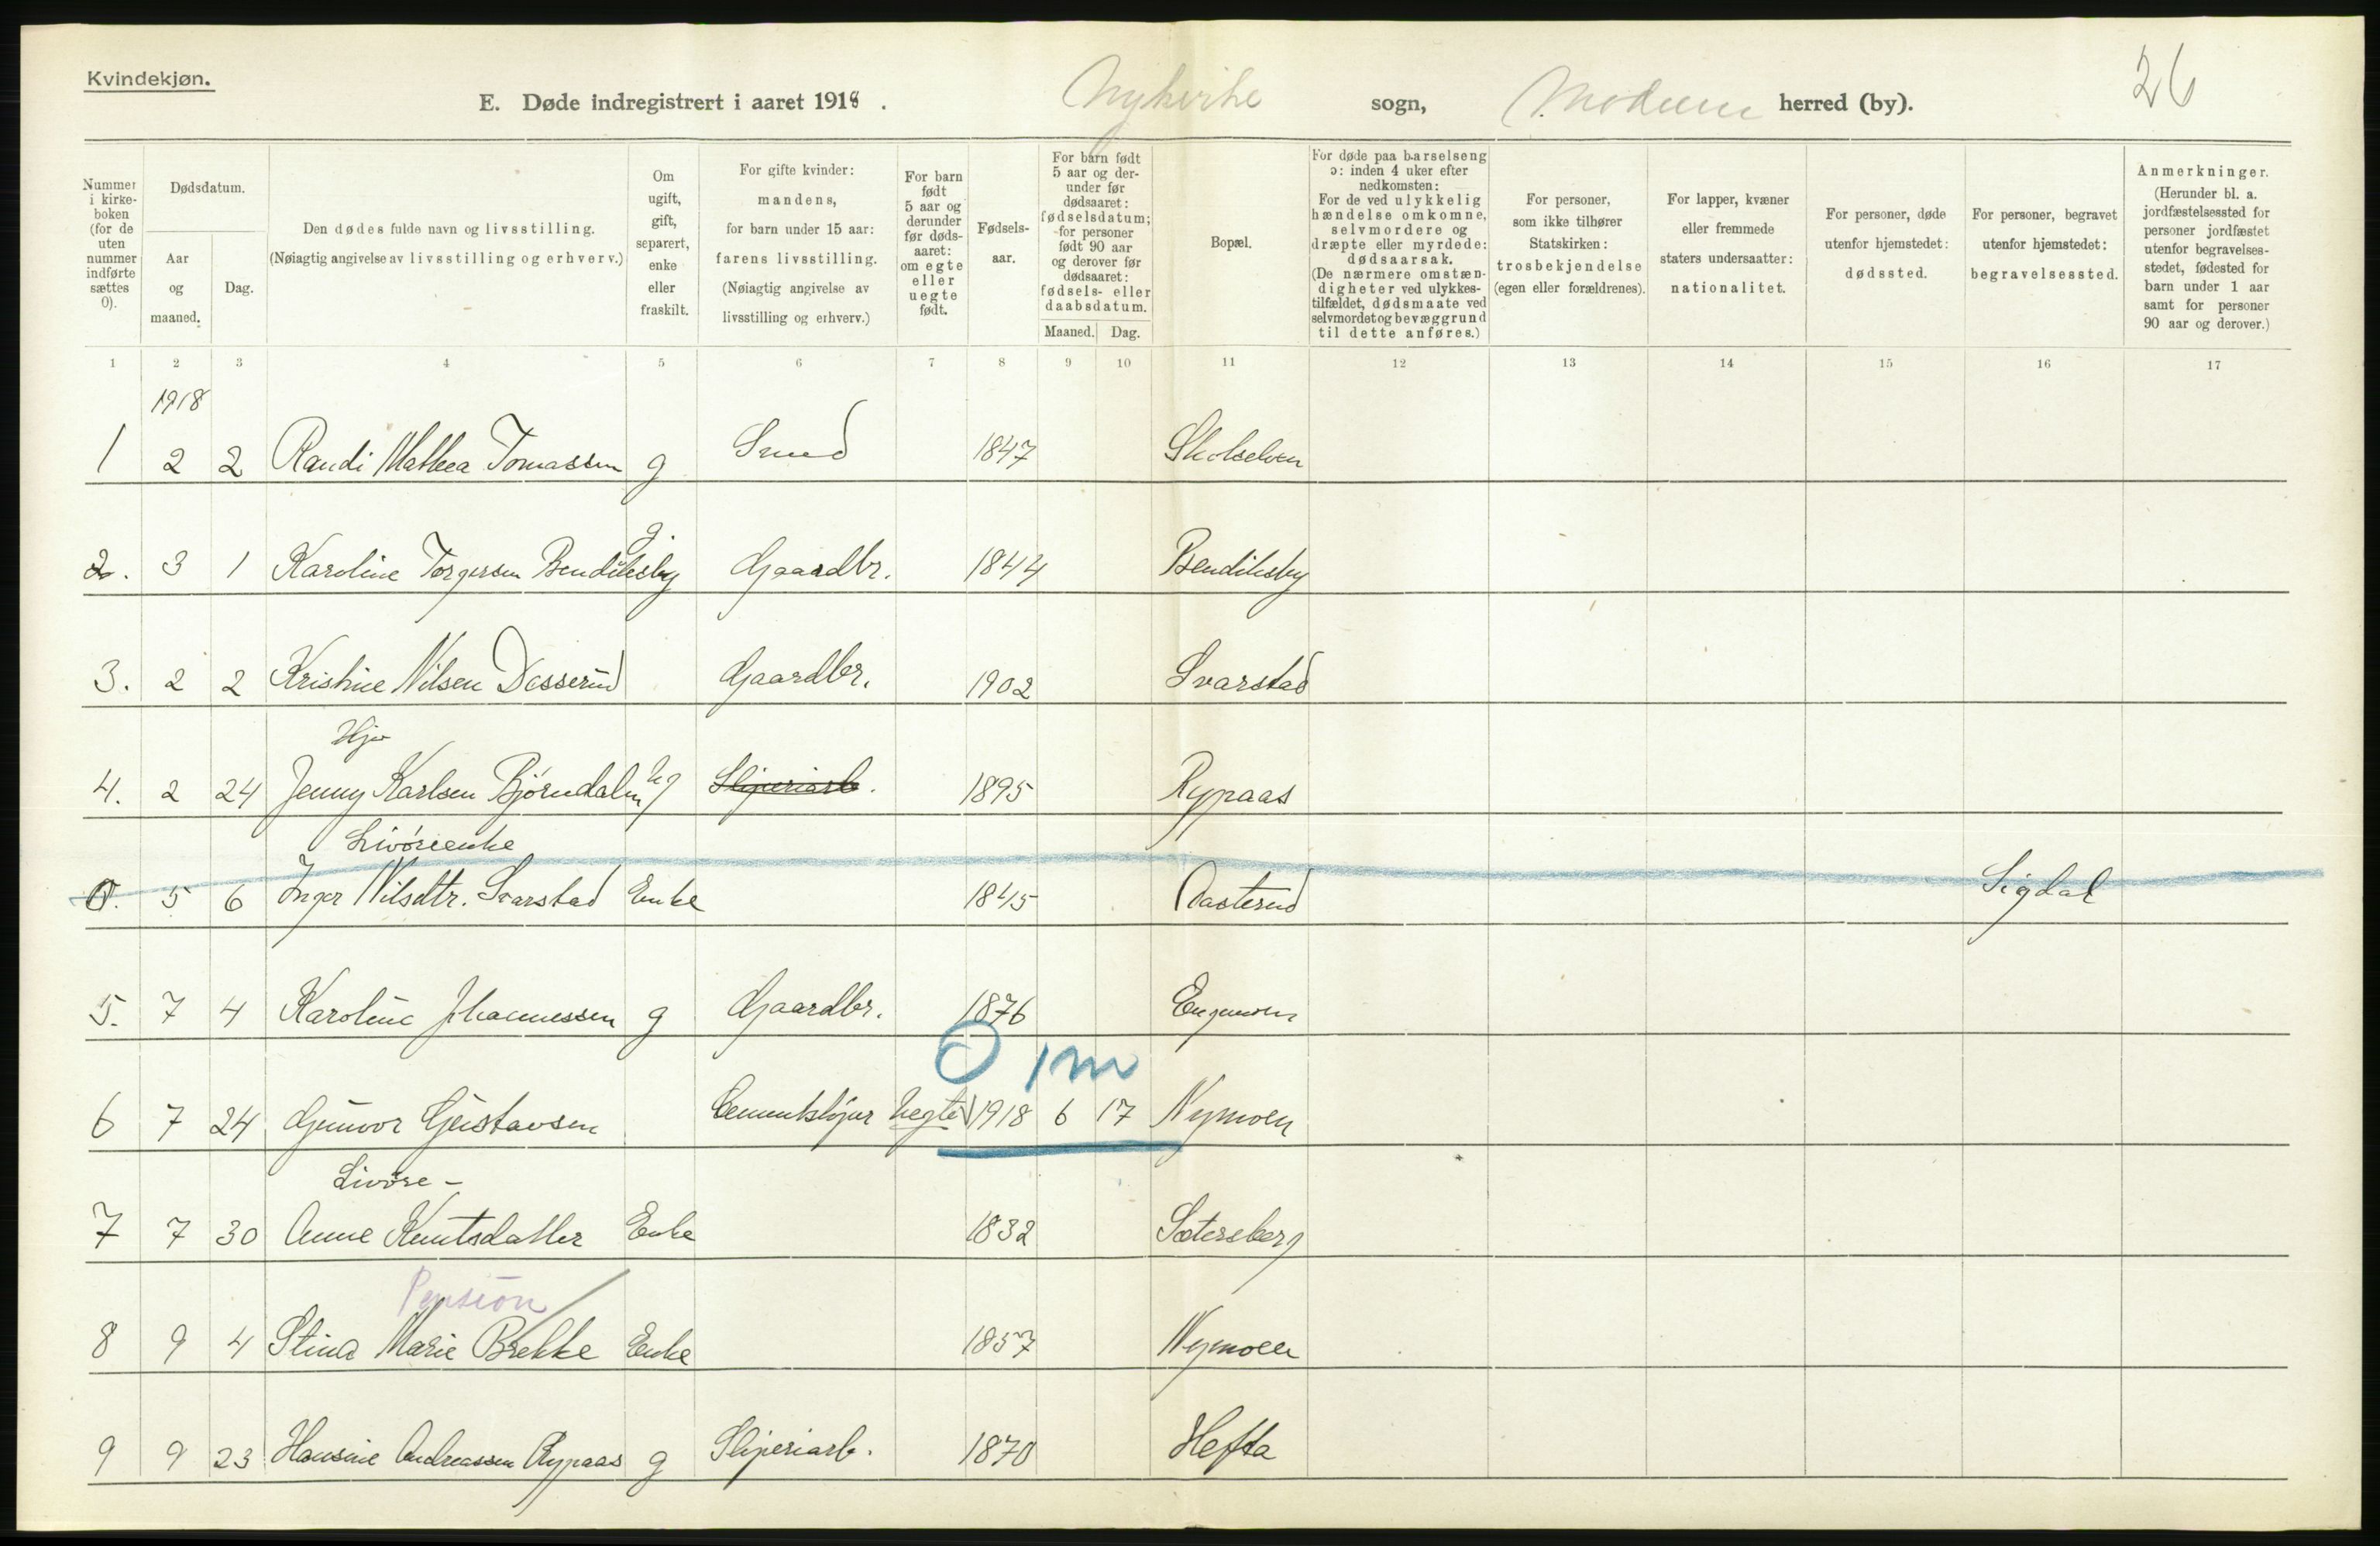 Kvindekjøn.
E. Døde indregistrert i aaret 1918.
Nykirke sogn, Modum herred (by).
26
Nummer i kirke-boken (for de uten nummer indførte sættes 0).
Dødsdatum.
Aar og maaned.
Dag.
Den dødes fulde navn og livsstilling.
(Nøiagtig angivelse av livsstilling og erhverv.)
Om ugift, gift, separert, enke eller fraskilt.
For gifte kvinder: mandens, for barn under 15 aar: farens livsstilling.
(Nøiagtig angivelse av livsstilling og erhverv.)
For barn født 5 aar og derunder før døds-aaret: om egte eller uegte født.
Fødsels-aar.
For barn født 5 aar og der-under før dødsaaret: fødselsdatum; for personer født 90 aar og derover før dødsaaret: fødsels- eller daabsdatum.
Maaned. Dag.
Bopæl.
For døde paa barselseng ɔ: inden 4 uker efter nedkomsten:
For de ved ulykkelig hændelse omkomne, selvmordere og dræpte eller myrdede: dødsaarsak.
(De nærmere omstæn-digheter ved ulykkes-tilfældet, dødsmaate ved selvmordet og bevæggrund til dette anføres.)
For personer, som ikke tilhører Statskirken: trosbekjendelse (egen eller forældrenes).
For lapper, kvæner eller fremmede staters undersaatter: nationalitet.
For personer, døde utenfor hjemstedet: dødssted.
For personer, begravet utenfor hjemstedet: begravelsessted.
Anmerkninger.
(Herunder bl. a. jordfæstelsessted for personer jordfæstet utenfor begravelses-stedet, fødested for barn under 1 aar samt for personer 90 aar og derover.)
1 2 3 4 5 6 7 8 9 10 11 12 13 14 15 16 17
1918
1 2 2 Randi Mathea Tomassen g Smed 1847 Skotselven
g.
2. 3 1 Karoline Torgersen Bendiksby Gaardbr. 1844 Bendiksby
3. 2 2 Kristine Nilsen Dosserud Gaardbr. 1902 Svarstad
4. 2 24 Jenny Karlsen Bjørndalen ug Sliperiarb. 1895 Rypaas
Livøreenke
0. 5 6 Inger Nilsdtr. Svarstad Enke 1845 Aasterud Sigdal
5. 7 4 Karoline Johannessen g Gaardbr. 1876 Engemoen
0 1 m
6 7 24 Gunvor Gustavsen Uegte 1918 6 17 Nymoen
Livøre-
7 7 30 Anne Knutsdatter Enke 1832 Sætersberg
Pension
8 9 4 Stina Marie Brekke Enke 1857 Nymoen
9 9 23 Hansine Andreassen Rypaas g Sliperiarb. 1870 Hefta